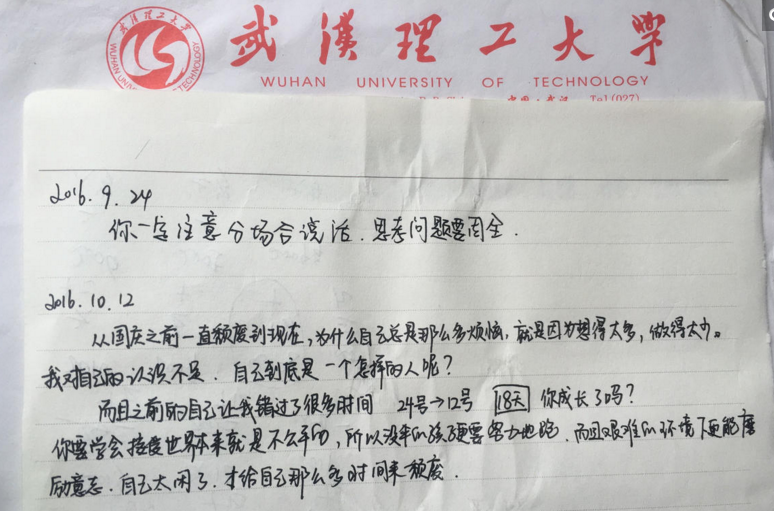 武漢理工大學
WUHAN UNIVERSITY OF TECHNOLOGY
Tel(027)
2016.9.24
你一定注意分场合说话.思考问题要周全.
2016.10.12
从国庆之前一直颓废到现在,为什么自己总是那么多烦恼,就是因为想得太多,做得太少。
我对自己的认识不足.自己到底是一个怎样的人呢?
而且之前的自己让我错过了很多时间 24号→12号 18天 你成长了吗?
你要学会接受世界本来就是不公平的,所以没伞的孩子更要努力地跑.而且艰难的环境下更能磨
励意志.自己太闲了.才给自己那么多时间来颓废.